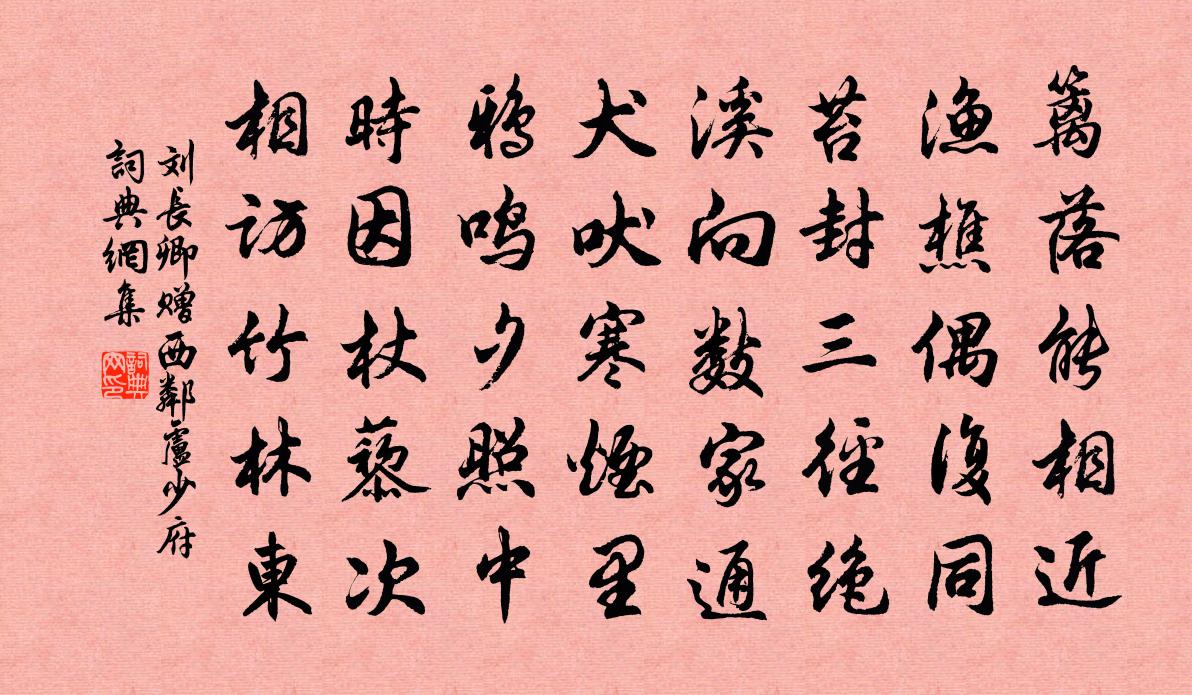 籬落能相近
漁樵偶復同
苔封三徑絶
溪向數家通
犬吠寒煙里
鴉鳴夕照中
時因杖藜次
相訪竹林東
刘長卿赠西鄰盧少府
詞典網集
詞典网印